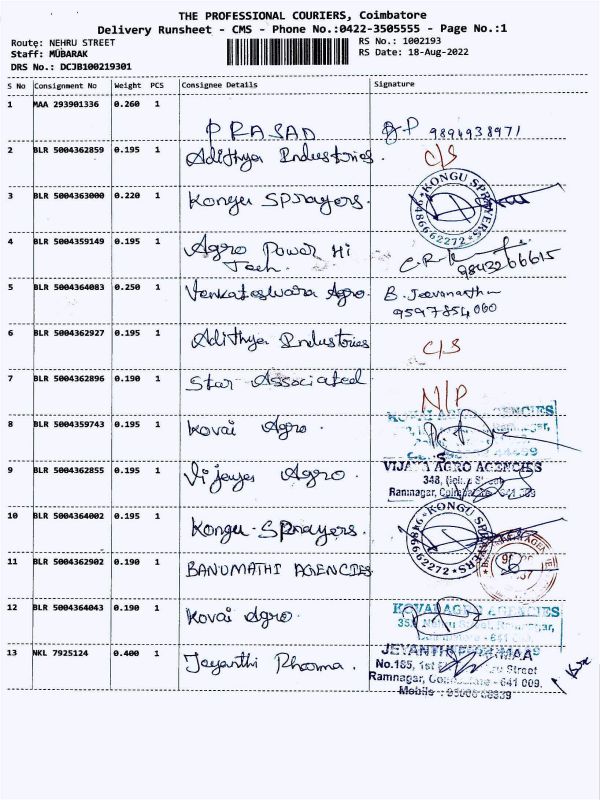 THE PROFESSIONAL COURIERS, Coimbatore
Delivery Runsheet - CMS - Phone No.:0422-3505555 - Page No.:1
Route: NEHRU STREET RS No.: 1002193
Staff: MUBARAK RS Date: 18-Aug-2022
DRS No.: DCJB100219301
S No Consignment No Weight PCS Consignee Details Signature
1 MAA 293901336 0.260 1 PRASAD 9894938971
2 BLR 5004362859 0.195 1 Adithya Industories. C/S
3 BLR 5004363000 0.220 1 Kongu Sprayers. KONGU SPRAYERS 9486662272
4 BLR 5004359149 0.195 1 Agro Power Hi
Tech. 9843266615
5 BLR 5004364083 0.250 1 Venkateswara Agro. B. Jeevanantha
9597854060
6 BLR 5004362927 0.195 1 Adithya Industories C/S
7 BLR 5004362896 0.190 1 Star Associated N/P
8 BLR 5004359743 0.195 1 Kovai Agro. KOVAI AGRO AGENCIES
9 BLR 5004362855 0.195 1 Vijaya Agro. VIJAYA AGRO AGENCIES
348, Street
Ramnagar, Coimbatore - 641 009
10 BLR 5004364002 0.195 1 Kongu Sprayers. KONGU SPRAYERS
11 BLR 5004362902 0.190 1 BANUMATHI AGENCIES
12 BLR 5004364043 0.190 1 Kovai Agro. KOVAI AGRO AGENCIES
Nehru Street, Ramnagar,
Coimbatore - 641 009.
13 NKL 7925124 0.400 1 Jayanthi Pharma. JEYANTHI PHARMAA
No.185, 1st Street
Ramnagar, Coimbatore - 641 009.
Mobile :